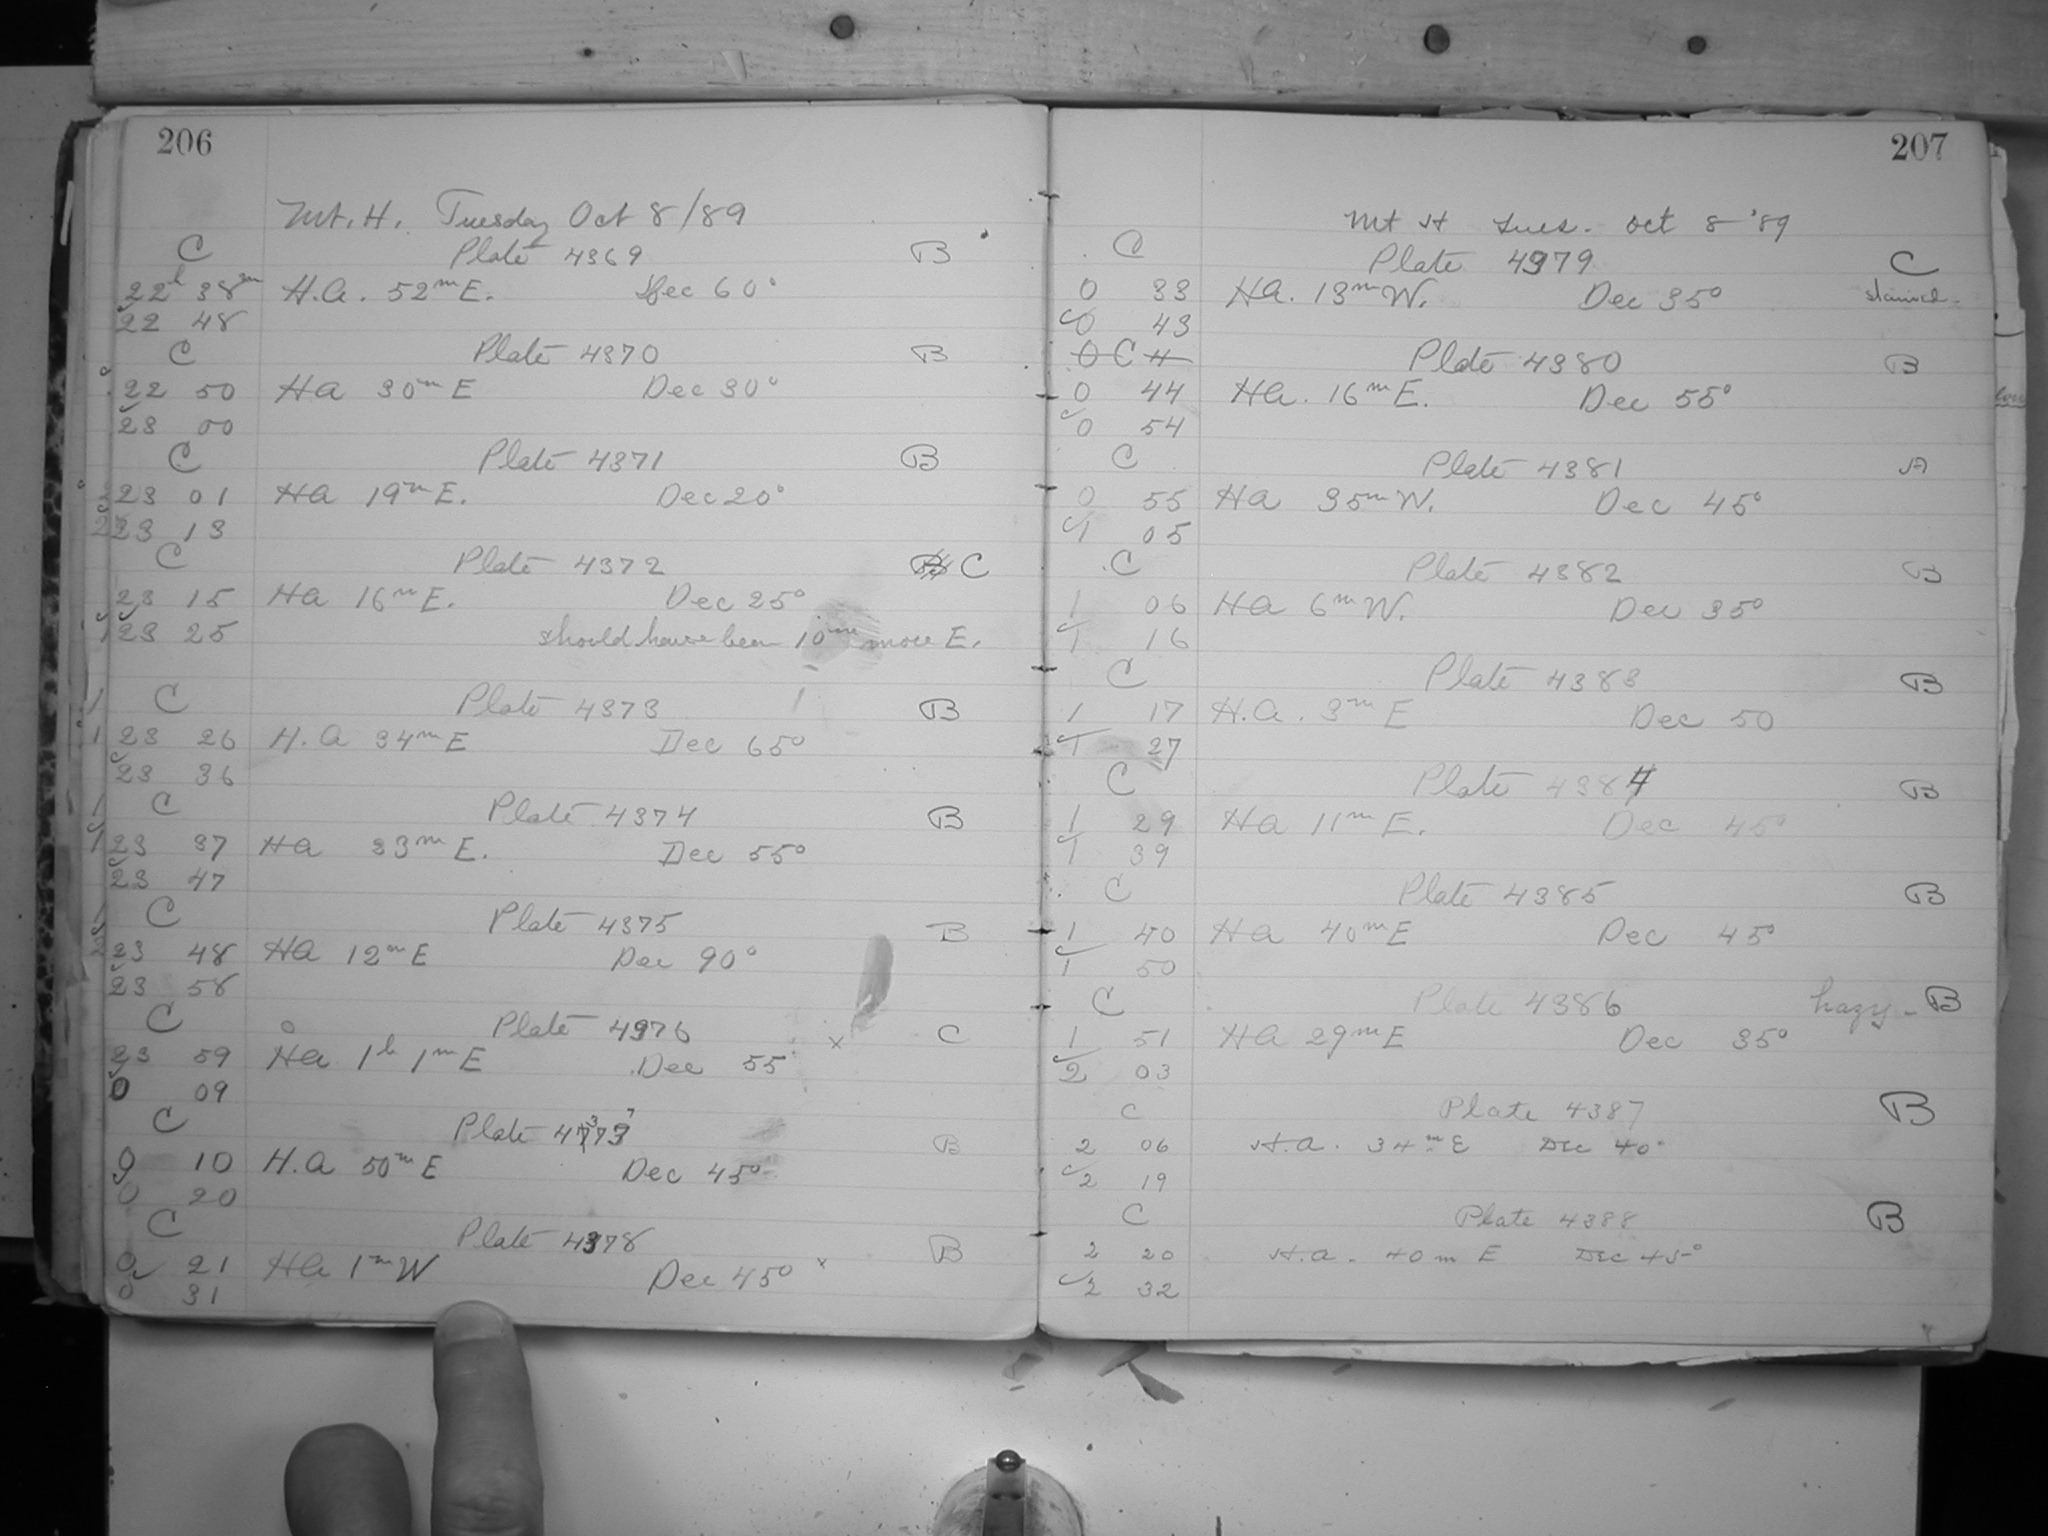 206
Mt. H. Tuesday Oct 8/89
C Plate 4369 B
22h 38m H.A. 52m E. Dec 60°
22 48
C Plate 4370 B
22 50 HA 30m E Dec 30°
23 00
C Plate 4371 B
23 01 HA 19m E. Dec 20°
23 13
C Plate 4372 C
23 15 HA 16m E. Dec 25°
23 25 should have been 10m more E.
C Plate 4373 B
23 26 H.A 34m E Dec 65°
23 36
C Plate 4374 B
23 37 HA 33m E. Dec 55°
23 47
C Plate 4375 B
23 48 HA 12m E Dec 90°
23 58
C Plate 4376 x C
23 59 HA 1h 1m E Dec 55
0 09
C Plate 4377 B
0 10 H.A 50m E Dec 45°
0 20
C Plate 4378 B
0 21 HA 1m W Dec 45° x
0 31
207
Mt H Tues. Oct 8 '89
C Plate 4379 C
0 33 HA. 13m W. Dec 35° stained
0 43
0 C 4 Plate 4380 B
0 44 HA. 16m E. Dec 55°
0 54
C Plate 4381 A
0 55 HA 35m W. Dec 45°
1 05
C Plate 4382 B
1 06 HA 6m W. Dec 35°
1 16
C Plate 4383 B
1 17 H.A. 3m E Dec 50
1 27
C Plate 4384 B
1 29 HA 11m E. Dec 45°
1 39
C Plate 4385 B
1 40 HA 40m E Dec 45°
1 50
C Plate 4386 hazy - B
1 51 HA 29m E Dec 35°
2 03
C Plate 4387 B
2 06 H.A. 34m E Dec 40°
2 19
C Plate 4388 B
2 20 H.A. 40m E Dec 45°
2 32